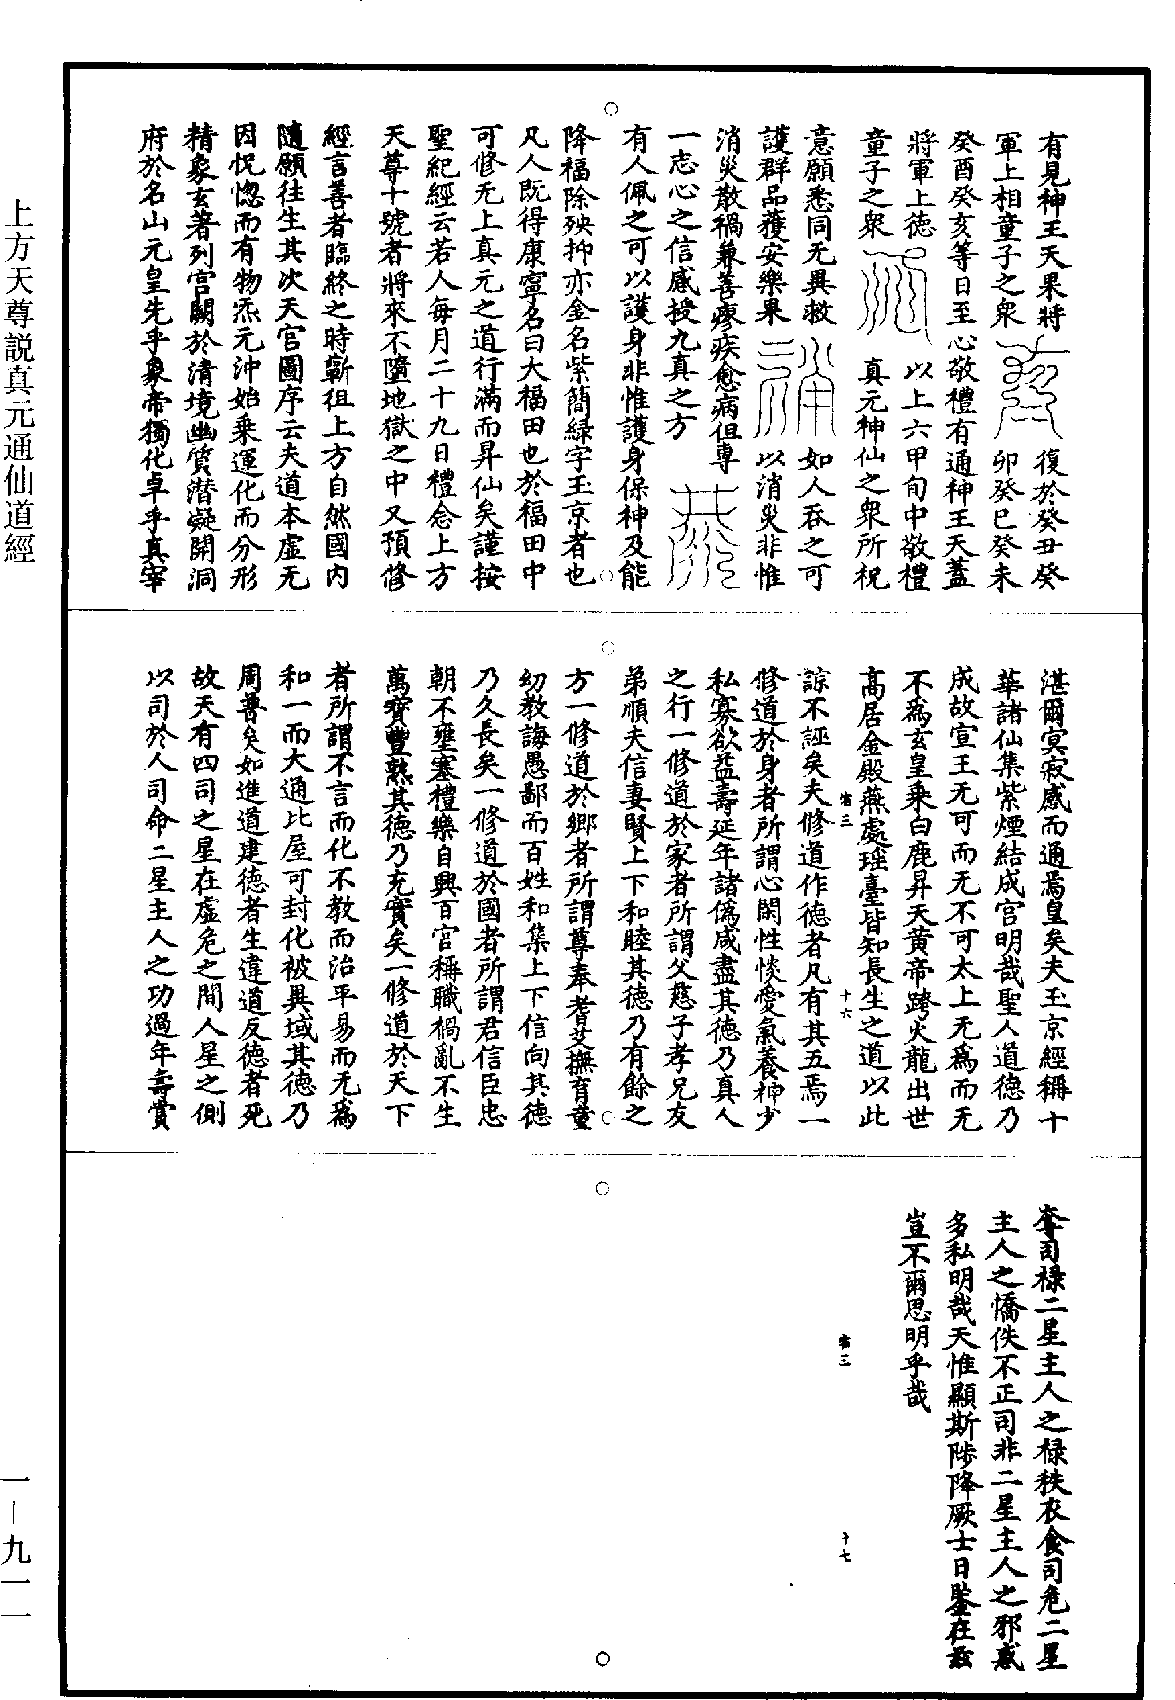 有見神王天果將
軍上相童子之衆
癸酉癸亥等日至心敬禮有通神王天蓋
將軍上德
童子之衆
復於癸丑癸
卯癸巳癸未
以上六甲旬中敬禮
真元神仙之衆所祝
意願悉同无異救
護群品獲安樂果
消災散禍兼善瘳疾愈病但專
一志心之信感授九真之方
有人佩之可以護身非惟護身保神及能
如人吞之可
以消災非惟
降福除殃抑亦金名紫簡緑字玉京者也
凡人既得康寧名曰大福田也於福田中
可修无上真元之道行滿而昇仙矣謹按
聖紀經云若人每月二十九日禮念上方
天尊十號者將來不墮地獄之中又預修
經言善者臨終之時蘄徂上方自然國内
隨願往生其次天宫圖序云夫道本虛无
因怳惚而有物炁元沖始乘運化而分形
精象玄著列宫闕於清境幽質潛凝開洞
府於名山元皇先乎象帝獨化卓乎真宰
湛爾冥寂感而通焉皇矣夫玉京經稱十
華諸仙集紫煙結成宫明哉聖人道德乃
成故宣王无可而无不可太上无爲而无
不爲玄皇乘白鹿昇天黄帝跨火龍出世
高居金殿燕處瑶臺皆知長生之道以此
宿三
十六
諒不誣矣夫修道作德者凡有其五焉一
修道於身者所謂心閑性惔愛氣養神少
私寡欲益壽延年諸僞咸盡其德乃真人
之行一修道於家者所謂父慈子孝兄友
弟順夫信妻賢上下和睦其德乃有餘之
方一修道於鄉者所謂尊奉耆艾撫育童
幼教誨愚鄙而百姓和集上下信向其德
乃久長矣一修道於國者所謂君信臣忠
朝不壅塞禮樂自興百官稱職禍亂不生
萬寶豐熟其德乃充實矣一修道於天下
者所謂不言而化不教而治平易而无爲
和一而大通比屋可封化被異域其德乃
周普矣如進道建德者生違道反德者死
故天有四司之星在虛危之間人星之側
以司於人司命二星主人之功過年壽賞
奪司禄二星主人之禄秩衣食司危二星
主人之憍佚不正司非二星主人之邪惑
多私明哉天惟顯斯陟降厥士日鑒在茲
豈不爾思明乎哉
宿三
十七
上方天尊説真元通仙道經
一—九一一